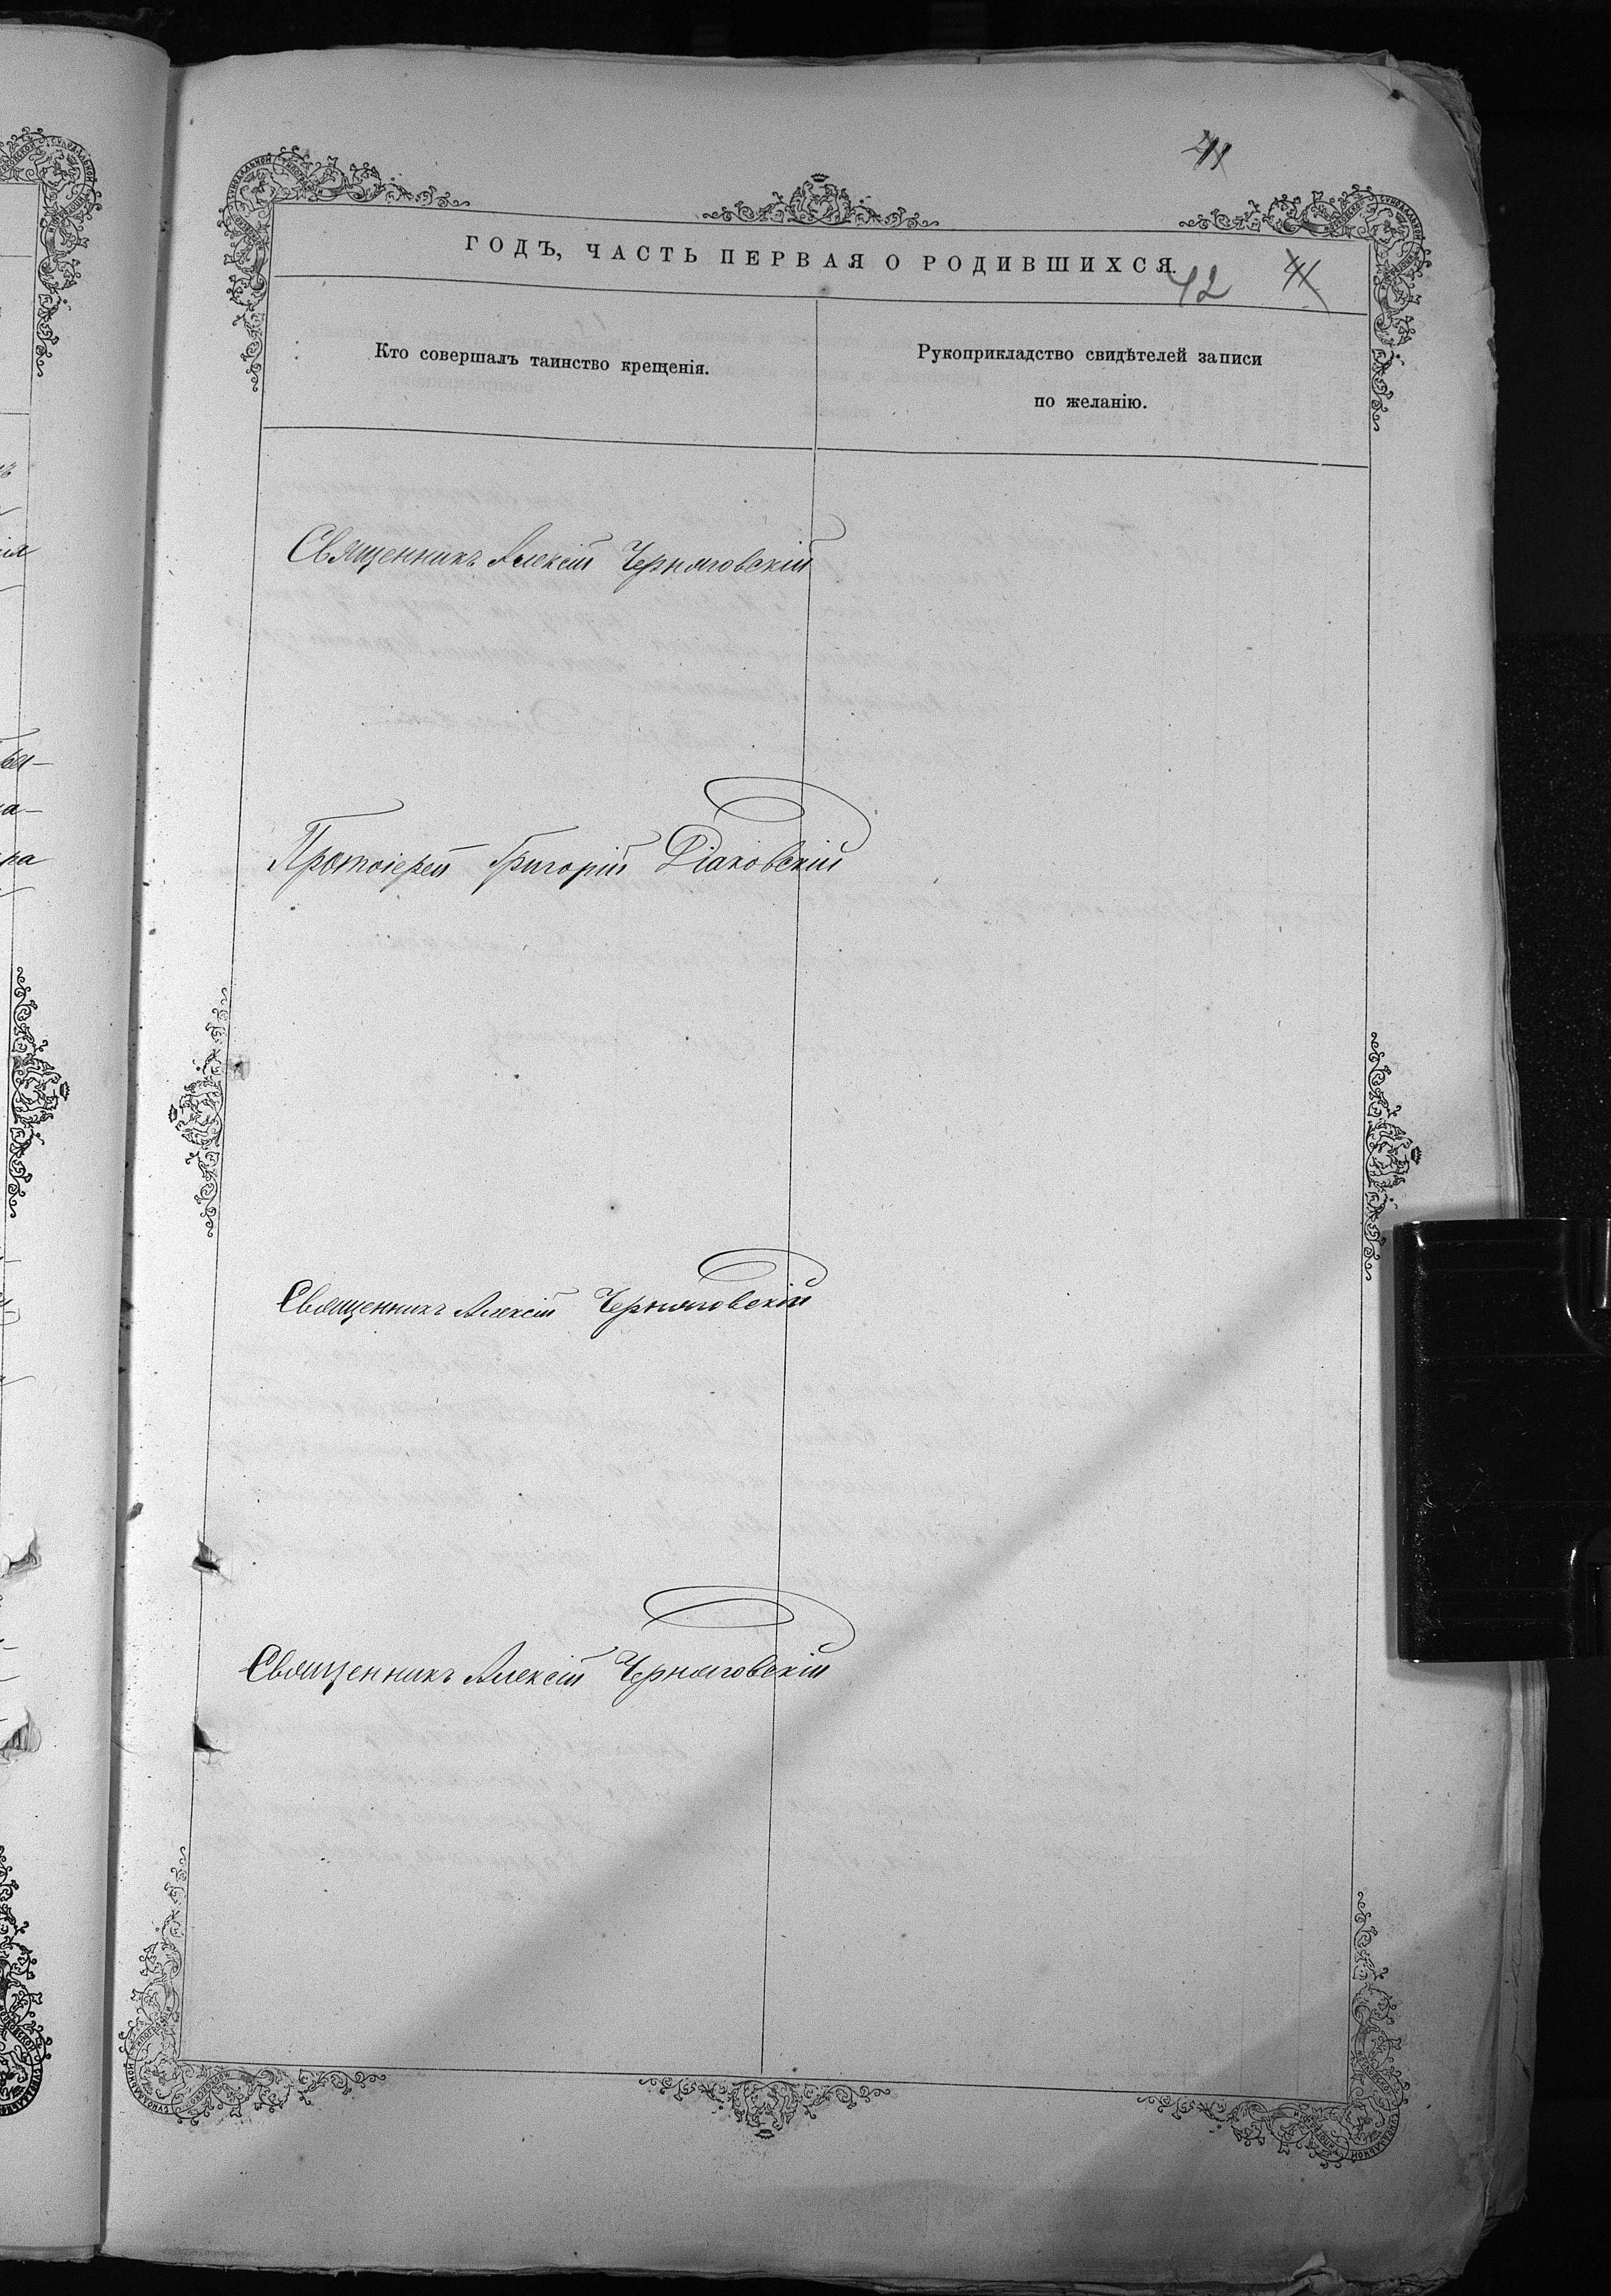 41
ГОДЪ, ЧАСТЬ ПЕРВАЯ О РОДИВШИХСЯ.
42
Кто совершалъ таинство крещенія.
Рукоприкладство свидѣтелей записи
по желанію.
Священникъ Алексій Черняговскій
Протоіерей Григорій Діаковскій
Священникъ Алексій Черняговскій
Священникъ Алексій Черняговскій